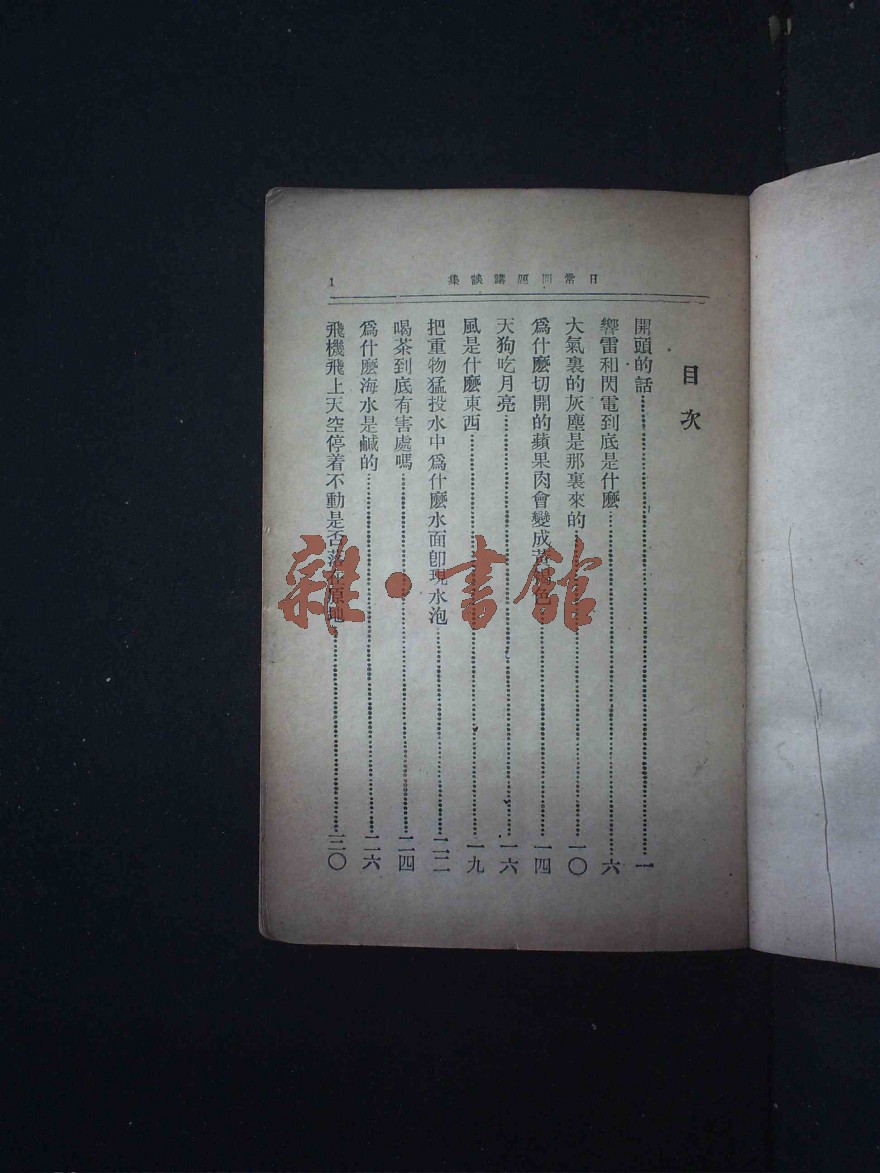 日常問題講談集
1
目次
開頭的話…………一
響雷和閃電到底是什麽…………六
大氣裏的灰塵是那裏來的…………一〇
爲什麽切開的蘋果肉會變成黃褐色…………一四
天狗吃月亮…………一六
風是什麽東西…………一九
把重物猛投水中爲什麽水面卽現水泡…………二二
喝茶到底有害處嗎…………二四
爲什麽海水是鹹的…………二六
飛機飛上天空停着不動是否落在原地…………三〇
雜·書館